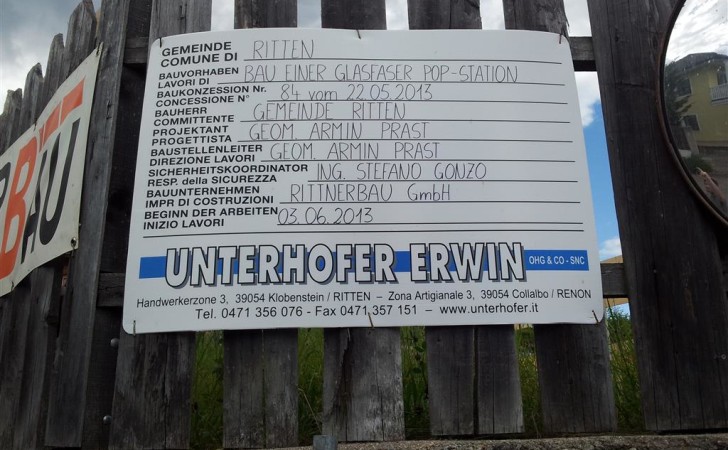 GEMEINDE RITTEN
COMUNE DI
BAUVORHABEN BAU EINER GLASFASER POP-STATION
LAVORI DI
BAUKONZESSION Nr. 84 vom 22.05.2013
CONCESSIONE N°
BAUHERR GEMEINDE RITTEN
COMMITTENTE
PROJEKTANT GEOM. ARMIN PRAST
PROGETTISTA
BAUSTELLENLEITER GEOM. ARMIN PRAST
DIREZIONE LAVORI
SICHERHEITSKOORDINATOR ING. STEFANO GONZO
RESP. della SICUREZZA
BAUUNTERNEHMEN RITTNERBAU GmbH
IMPR DI COSTRUZIONI
BEGINN DER ARBEITEN 03.06.2013
INIZIO LAVORI
UNTERHOFER ERWIN OHG & CO - SNC
Handwerkerzone 3, 39054 Klobenstein / RITTEN – Zona Artigianale 3, 39054 Collalbo / RENON
Tel. 0471 356 076 - Fax 0471 357 151 – www.unterhofer.it
BAU